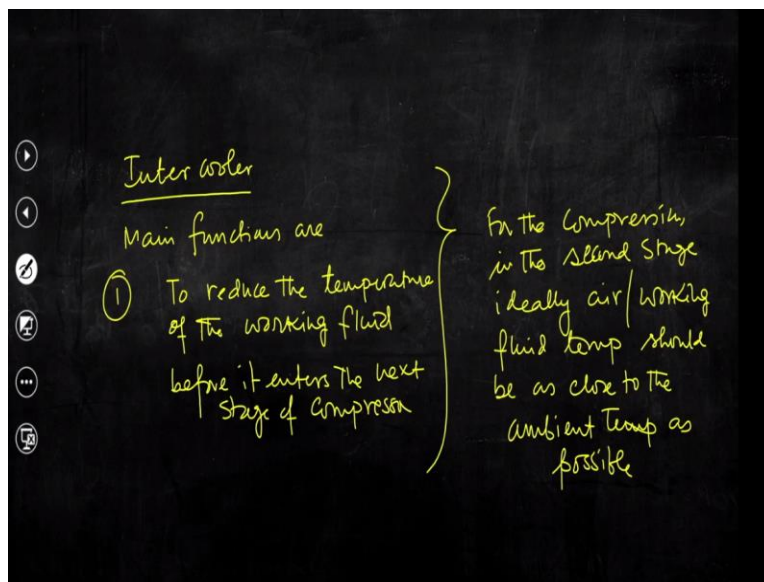 Inter cooler
Main functions are
1 To reduce the temperature
of the working fluid
before it enters the next
stage of compressor
For the compression,
in the second stage
ideally air/working
fluid temp should
be as close to the
ambient Temp as
possible